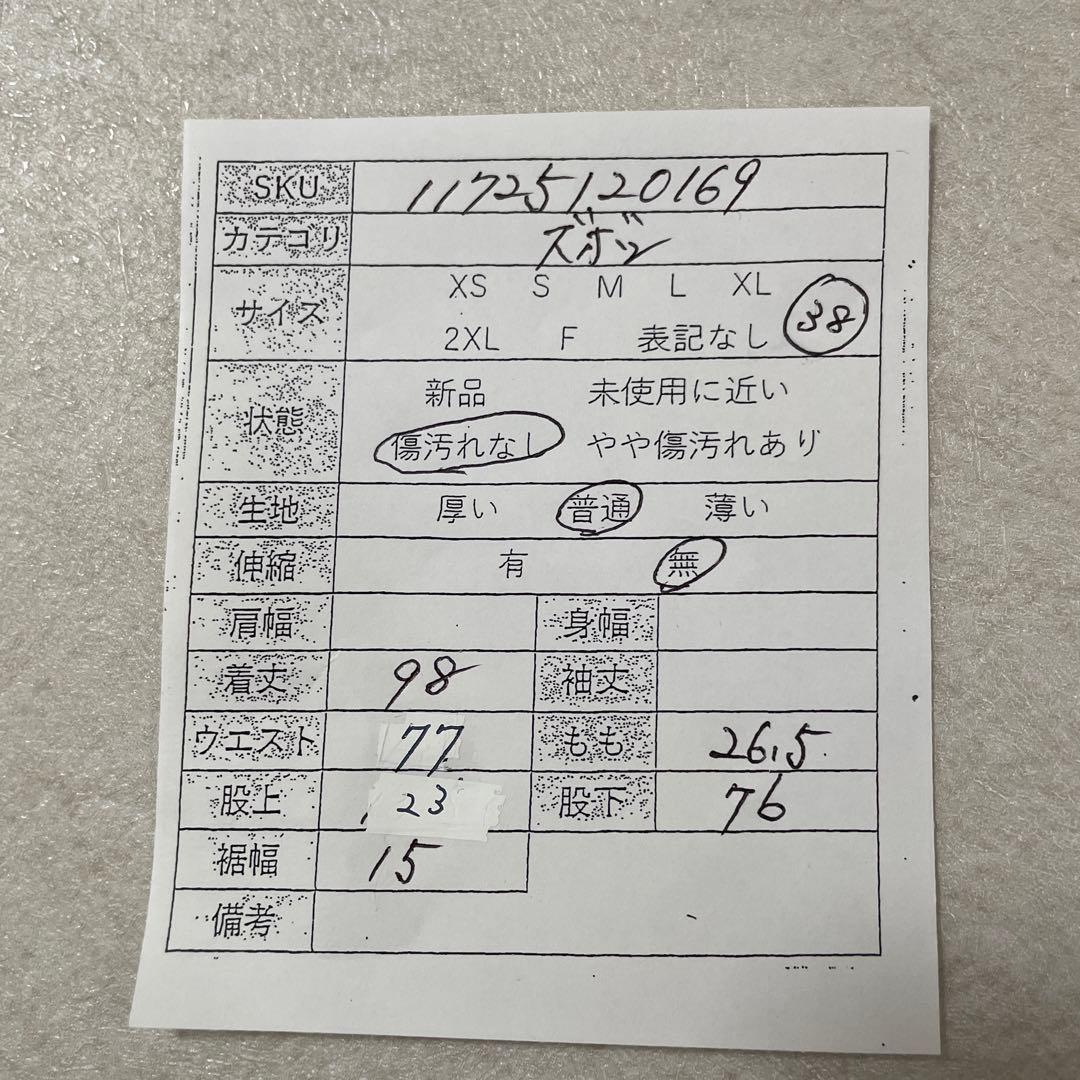 SKU 11725120169
カテゴリ ズボン
サイズ XS S M L XL 38
2XL F 表記なし
状態 新品 未使用に近い
傷汚れなし やや傷汚れあり
生地 厚い 普通 薄い
伸縮 有 無
肩幅 身幅
着丈 98 袖丈
ウエスト 77 もも 26.5
股上 23 股下 76
裾幅 15
備考